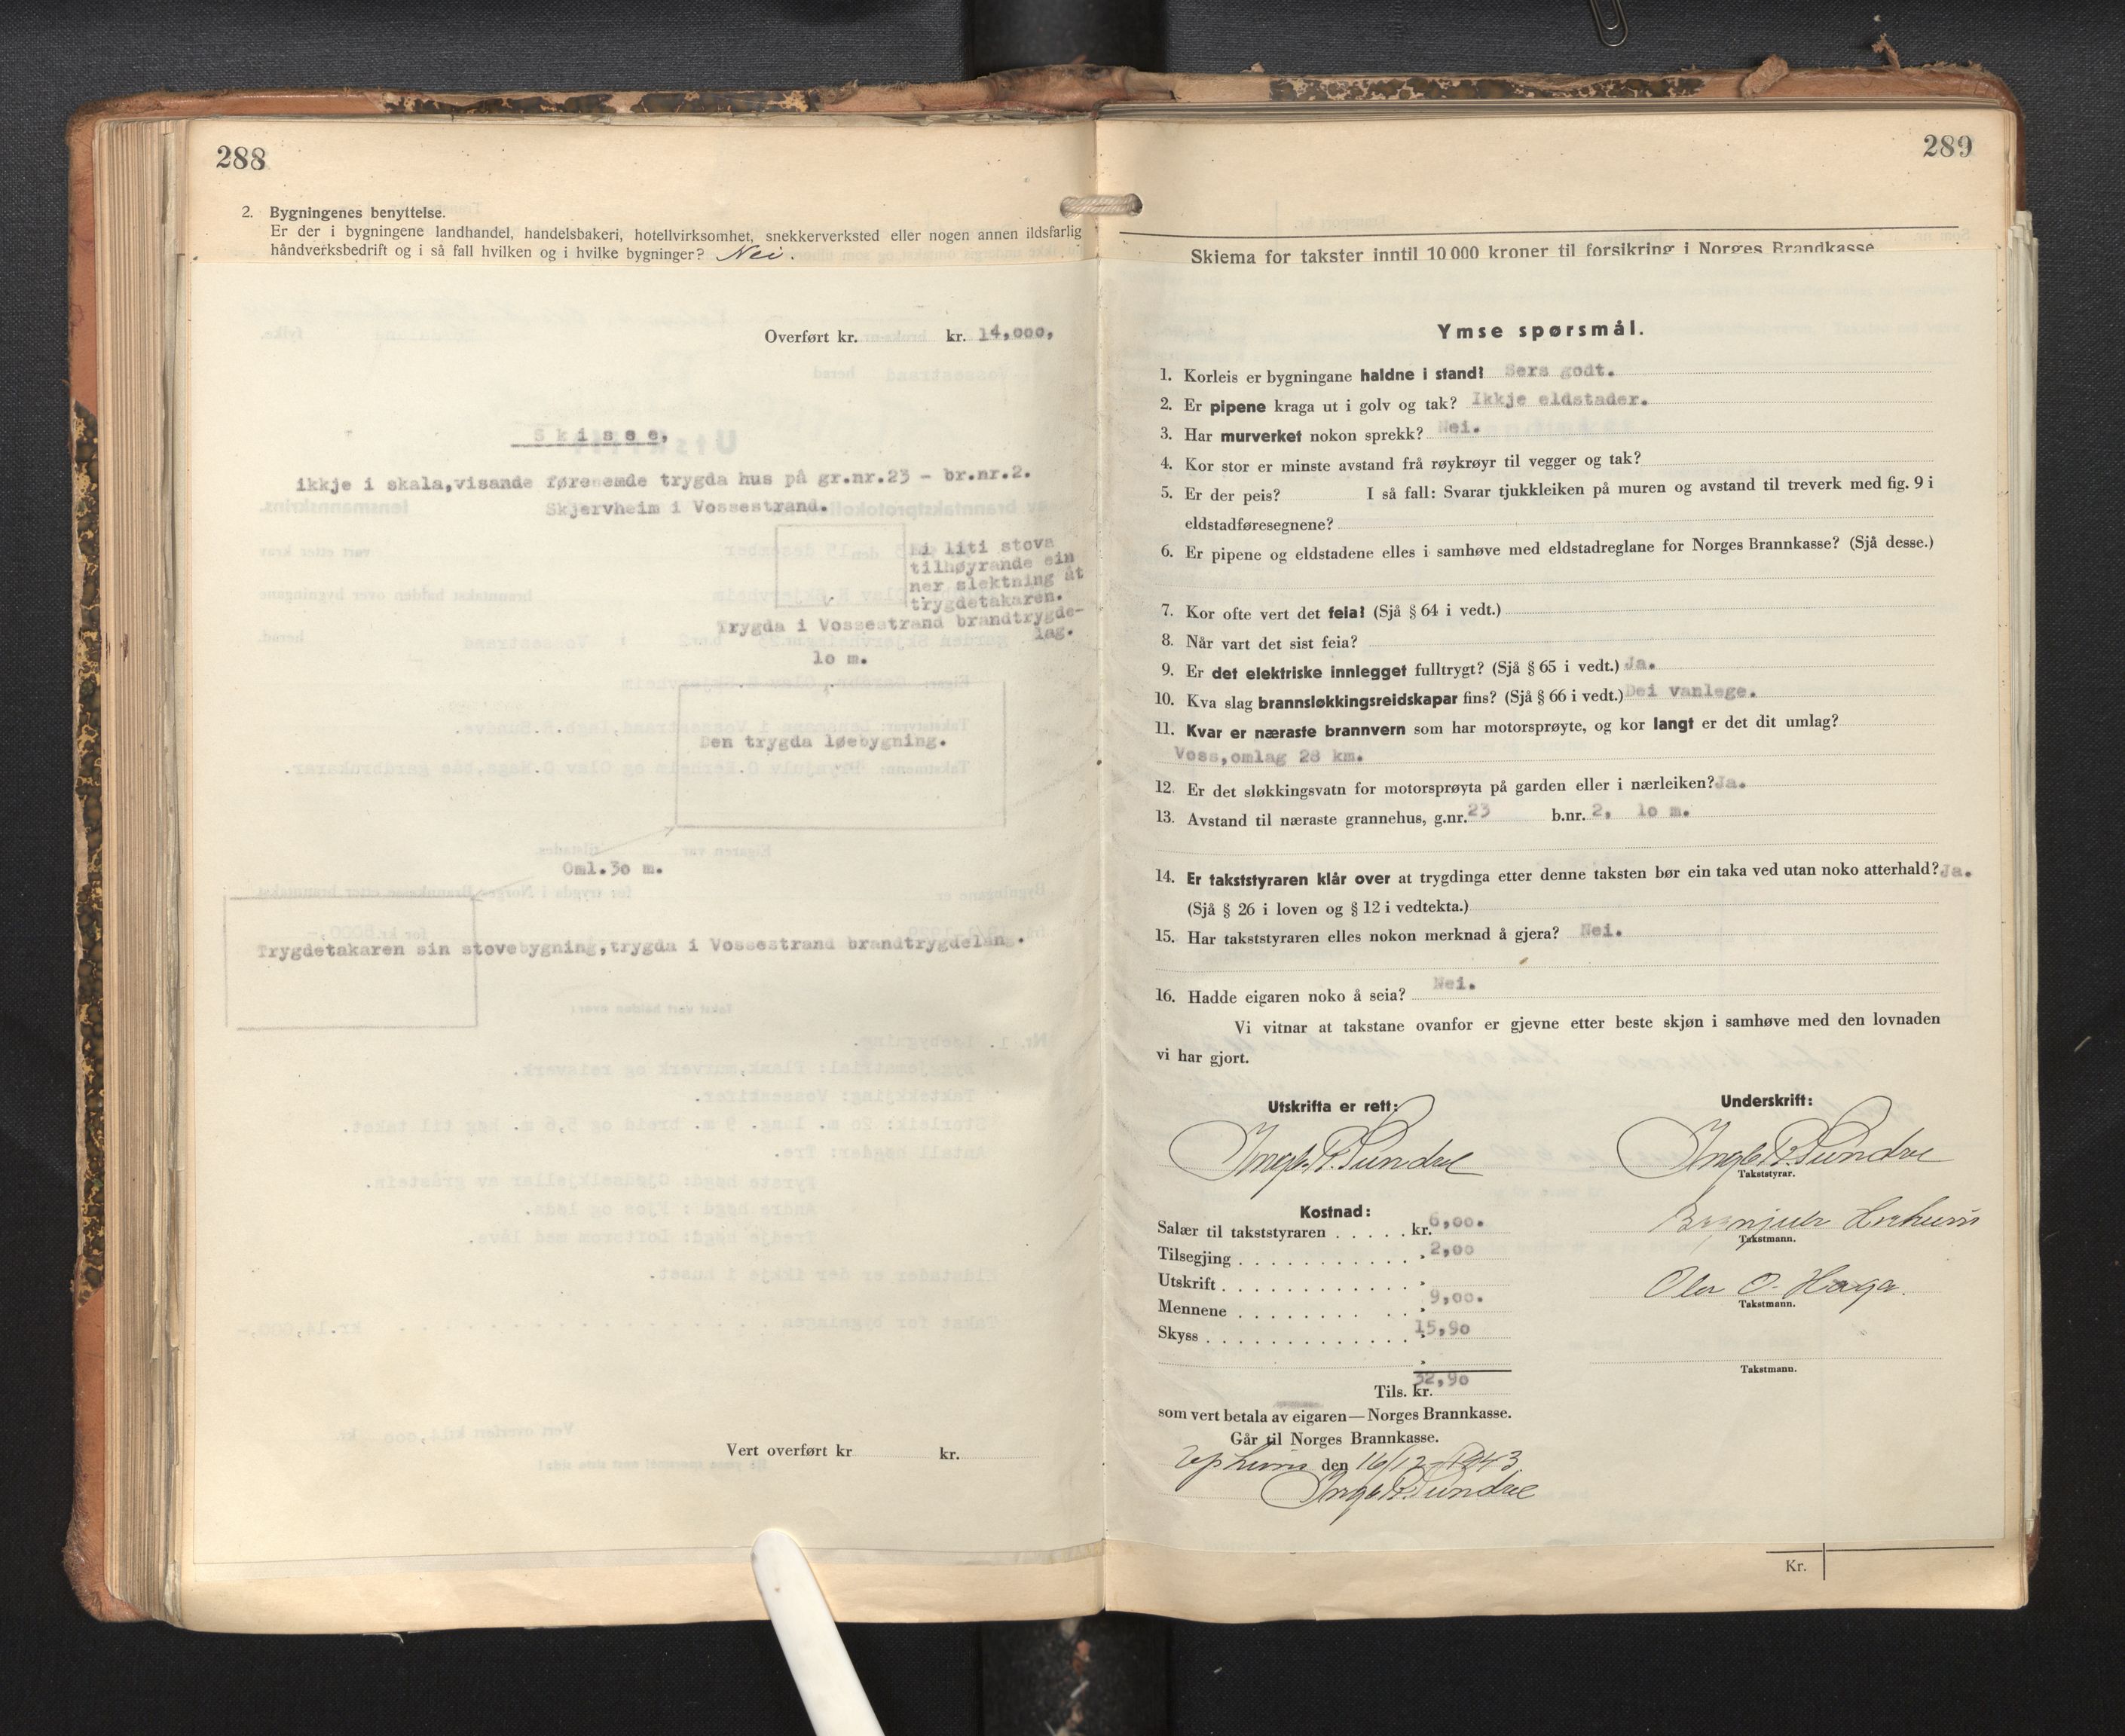 288
2. Bygningenes benyttelse.
Er der i bygningene landhandel, handelsbakeri, hotellvirksomhet, snekkerverksted eller nogen annen ildsfarlig
håndverksbedrift og i så fall hvilken og i hvilke bygninger? Nei.
Overført kr. kr. 14,000,
Skisse,
ikkje i skala,visande førenemde trygda hus på gr.nr.23 - br.nr.2.
Skjervheim i Vossestrand.
Ei liti stova
tilhøyrande ein
nær slektning åt
trygdetakaren.
Trygda i Vossestrand brandtrygde-
lag.
10 m.
Den trygda løebygning.
Oml.30 m.
Trygdetakaren sin stovebygning,trygda i Vossestrand brandtrygdelag.
Vert overført kr kr.
289
Skjema for takster inntil 10 000 kroner til forsikring i Norges Brandkasse
Ymse spørsmål.
1. Korleis er bygningane haldne i stand? Sers godt.
2. Er pipene kraga ut i golv og tak? Ikkje eldstader.
3. Har murverket nokon sprekk? Nei.
4. Kor stor er minste avstand frå røykrøyr til vegger og tak?
5. Er der peis? I så fall: Svarar tjukkleiken på muren og avstand til treverk med fig. 9 i
eldstadføresegnene?
6. Er pipene og eldstadene elles i samhøve med eldstadreglane for Norges Brannkasse? (Sjå desse.)
7. Kor ofte vert det feia? (Sjå § 64 i vedt.)
8. Når vart det sist feia?
9. Er det elektriske innlegget fulltrygt? (Sjå § 65 i vedt.) Ja.
10. Kva slag brannsløkkingsreidskapar fins? (Sjå § 66 i vedt.) Dei vanlege.
11. Kvar er næraste brannvern som har motorsprøyte, og kor langt er det dit umlag?
Voss,omlag 28 km.
12. Er det sløkkingsvatn for motorsprøyta på garden eller i nærleiken? Ja.
13. Avstand til næraste grannehus, g.nr. 23 b.nr. 2, 10 m.
14. Er takststyraren klår over at trygdinga etter denne taksten bør ein taka ved utan noko atterhald? Ja.
(Sjå § 26 i loven og § 12 i vedtekta.)
15. Har takststyraren elles nokon merknad å gjera? Nei.
16. Hadde eigaren noko å seia? Nei.
Vi vitnar at takstane ovanfor er gjevne etter beste skjøn i samhøve med den lovnaden
vi har gjort.
Utskrifta er rett:
Underskrift:
Takststyrar.
Kostnad:
Salær til takststyraren . . . . . kr. 6,00.
Takstmann.
Tilsegjing . . . . . . . . . . . „ 2,00
Utskrift . . . . . . . . . . . . „
Olav O. Haga.
Mennene . . . . . . . . . . „ 9,00.
Takstmann.
Skyss . . . . . . . . . . . . . „ 15,90
Takstmann.
Tils. kr. 32,90
som vert betala av eigaren — Norges Brannkasse.
Går til Norges Brannkasse.
den 16/12 1943
Kr.